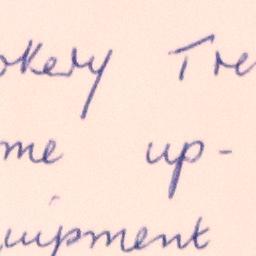 okery Tre
me up-
quipment